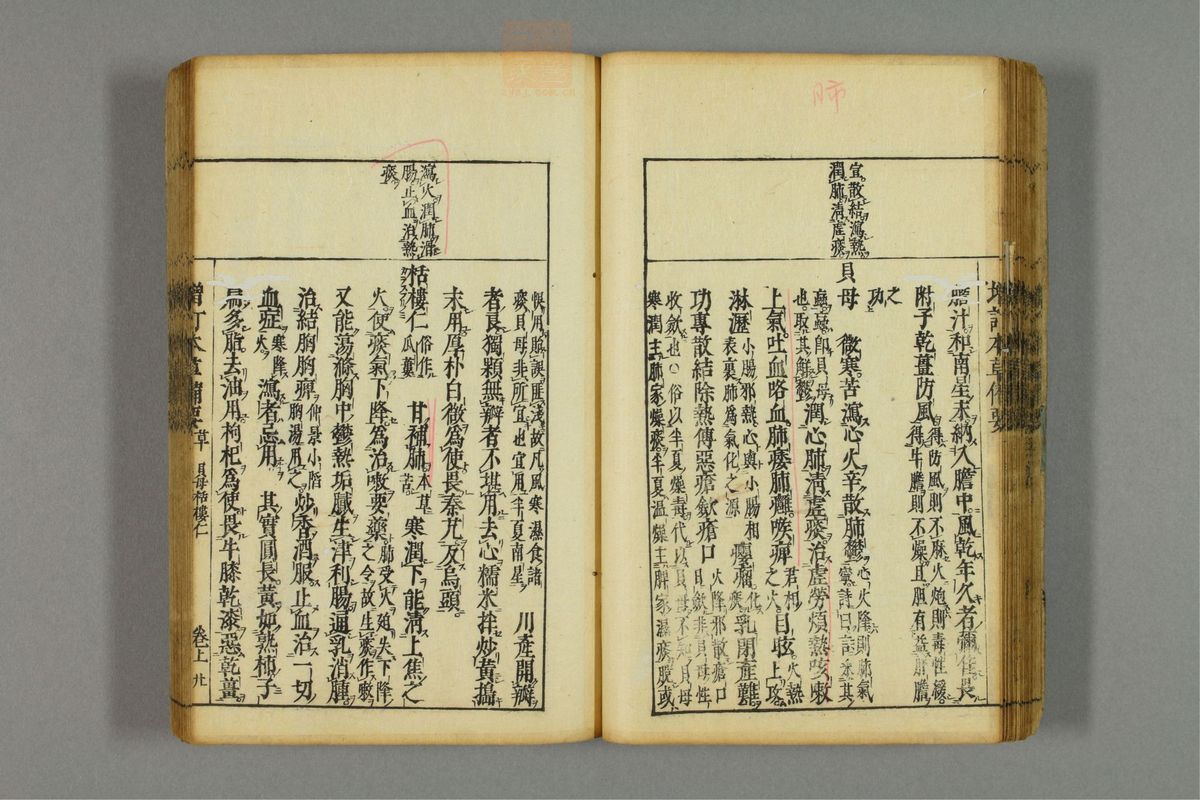 肺
宜散結瀉熱
潤肺清虛痰
膽汁和南星末納入膽中風乾年久者彌佳畏
附子乾薑防風得防風則不麻火炮則毒性緩
得牛膽則不燥且膽有益肝膽
之
功
貝母 微寒苦瀉心火辛散肺鬱心火降則肺氣
寧詩曰言采其
蝱蝱即貝母
也取其解鬱潤心肺清虛痰治虛勞煩熱咳嗽
上氣吐血咯血肺痿肺癰喉痺君相
之火目眩火熱
上攻
淋瀝小腸邪熱心與小腸相
表裏肺為氣化之源癭瘤化
痰乳閉産難
功專散結除熱傳惡瘡斂瘡口火降邪散瘡口
自斂非貝母性
收斂也○俗以半夏燥毒代以貝母不知貝母
寒潤主肺家燥痰半夏溫燥主脾家濕痰脫或
瀉火潤肺滑
腸止血消熱
痰
悞用貽誤匪淺故凡風寒濕食諸
痰貝母非所宜也宜用半夏南星 川産開瓣
者良獨顆無瓣者不堪用去心糯米拌炒黃搗
末用厚朴白微為使畏秦艽反烏頭
栝樓仁俗作
瓜蔞 甘補肺本草
苦 寒潤下能清上焦之
火使痰氣下降為治嗽要藥肺受火逼失下降
之令故生痰作嗽
又能蕩滌胸中鬱熱垢膩生津利腸通乳消腫
治結胸胸痺仲景小陷
胸湯用之炒香酒服止血治一切
血症寒降
火瀉者忌用 其實圓長黃如熟柿子
扁多脂去油用枸杞為使畏牛膝乾漆惡乾薑
增訂本草備要 草 貝母栝樓仁 卷上 廿